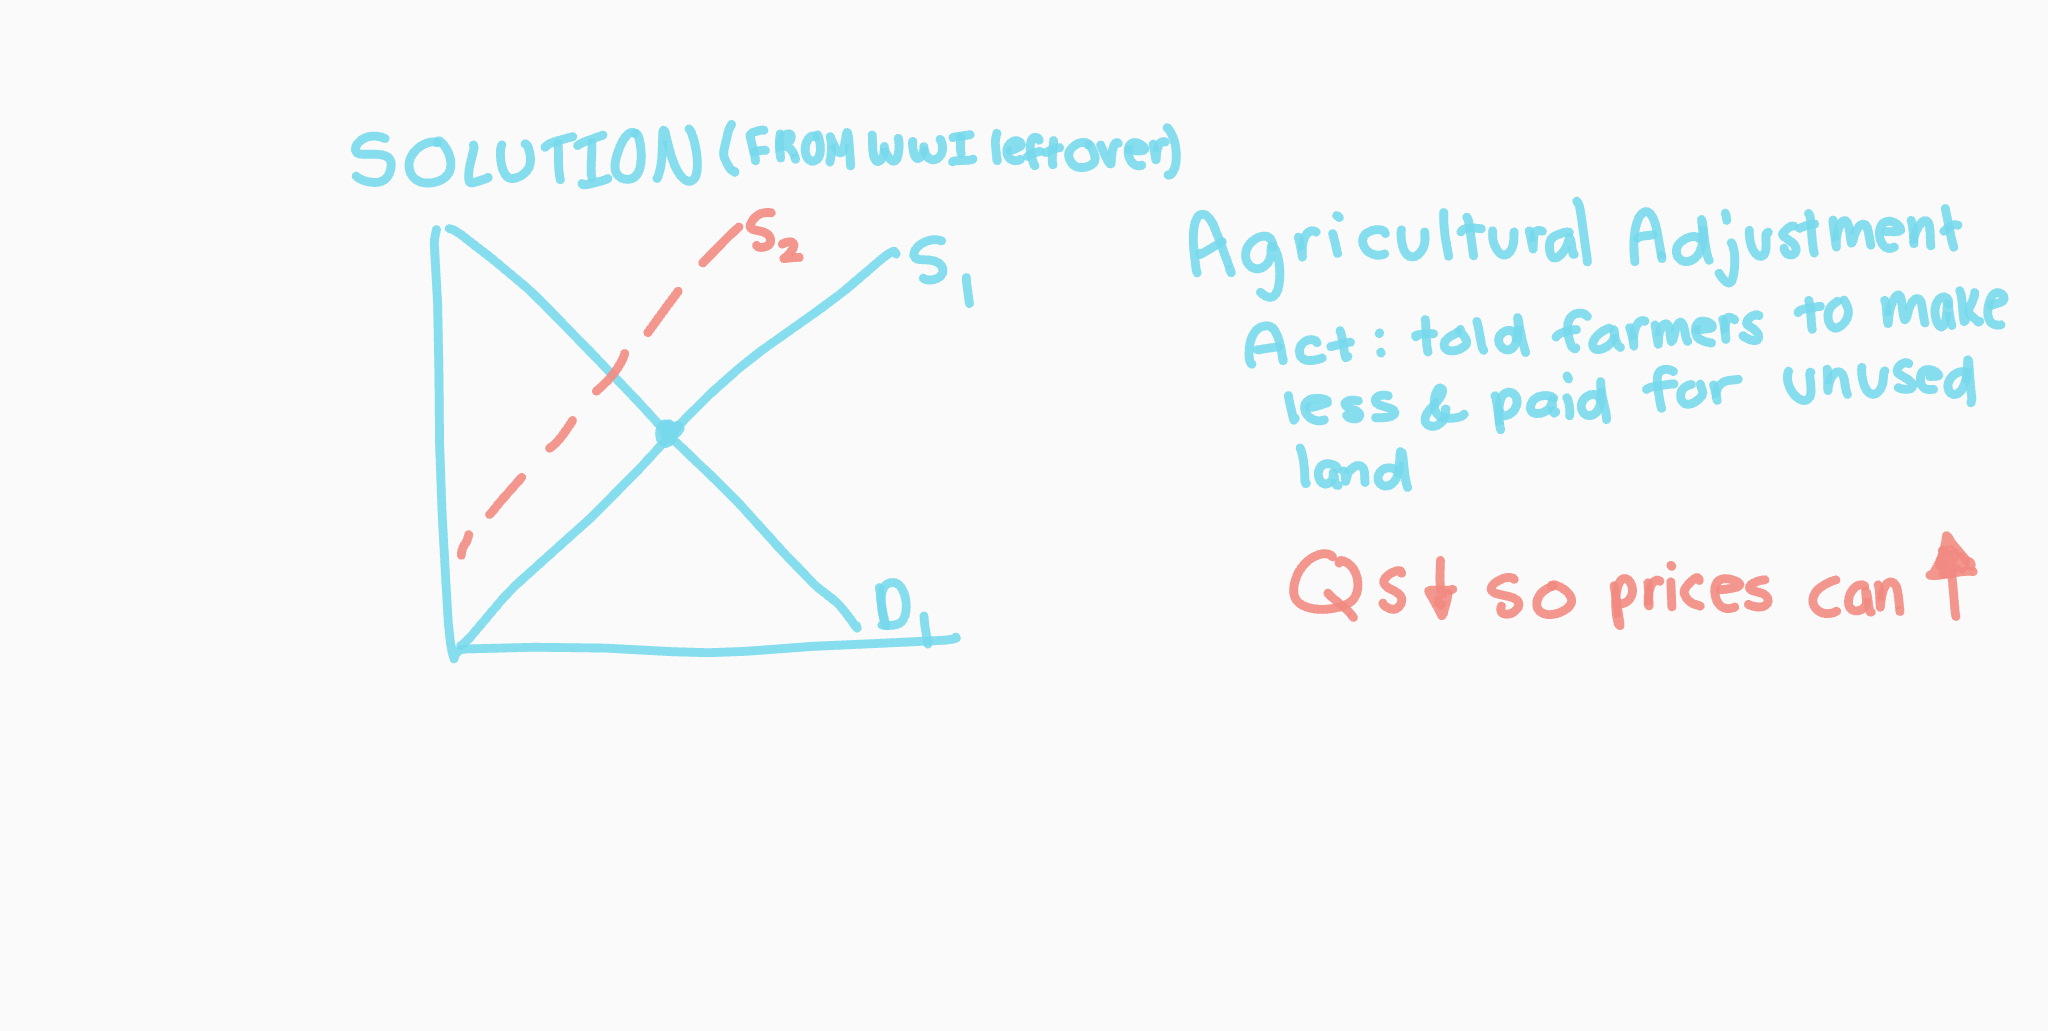 SOLUTION (FROM WWI leftover)
S2
S1
D1
Agricultural Adjustment
Act: told farmers to make
less & paid for unused
land
Qs ↓ so prices can ↑